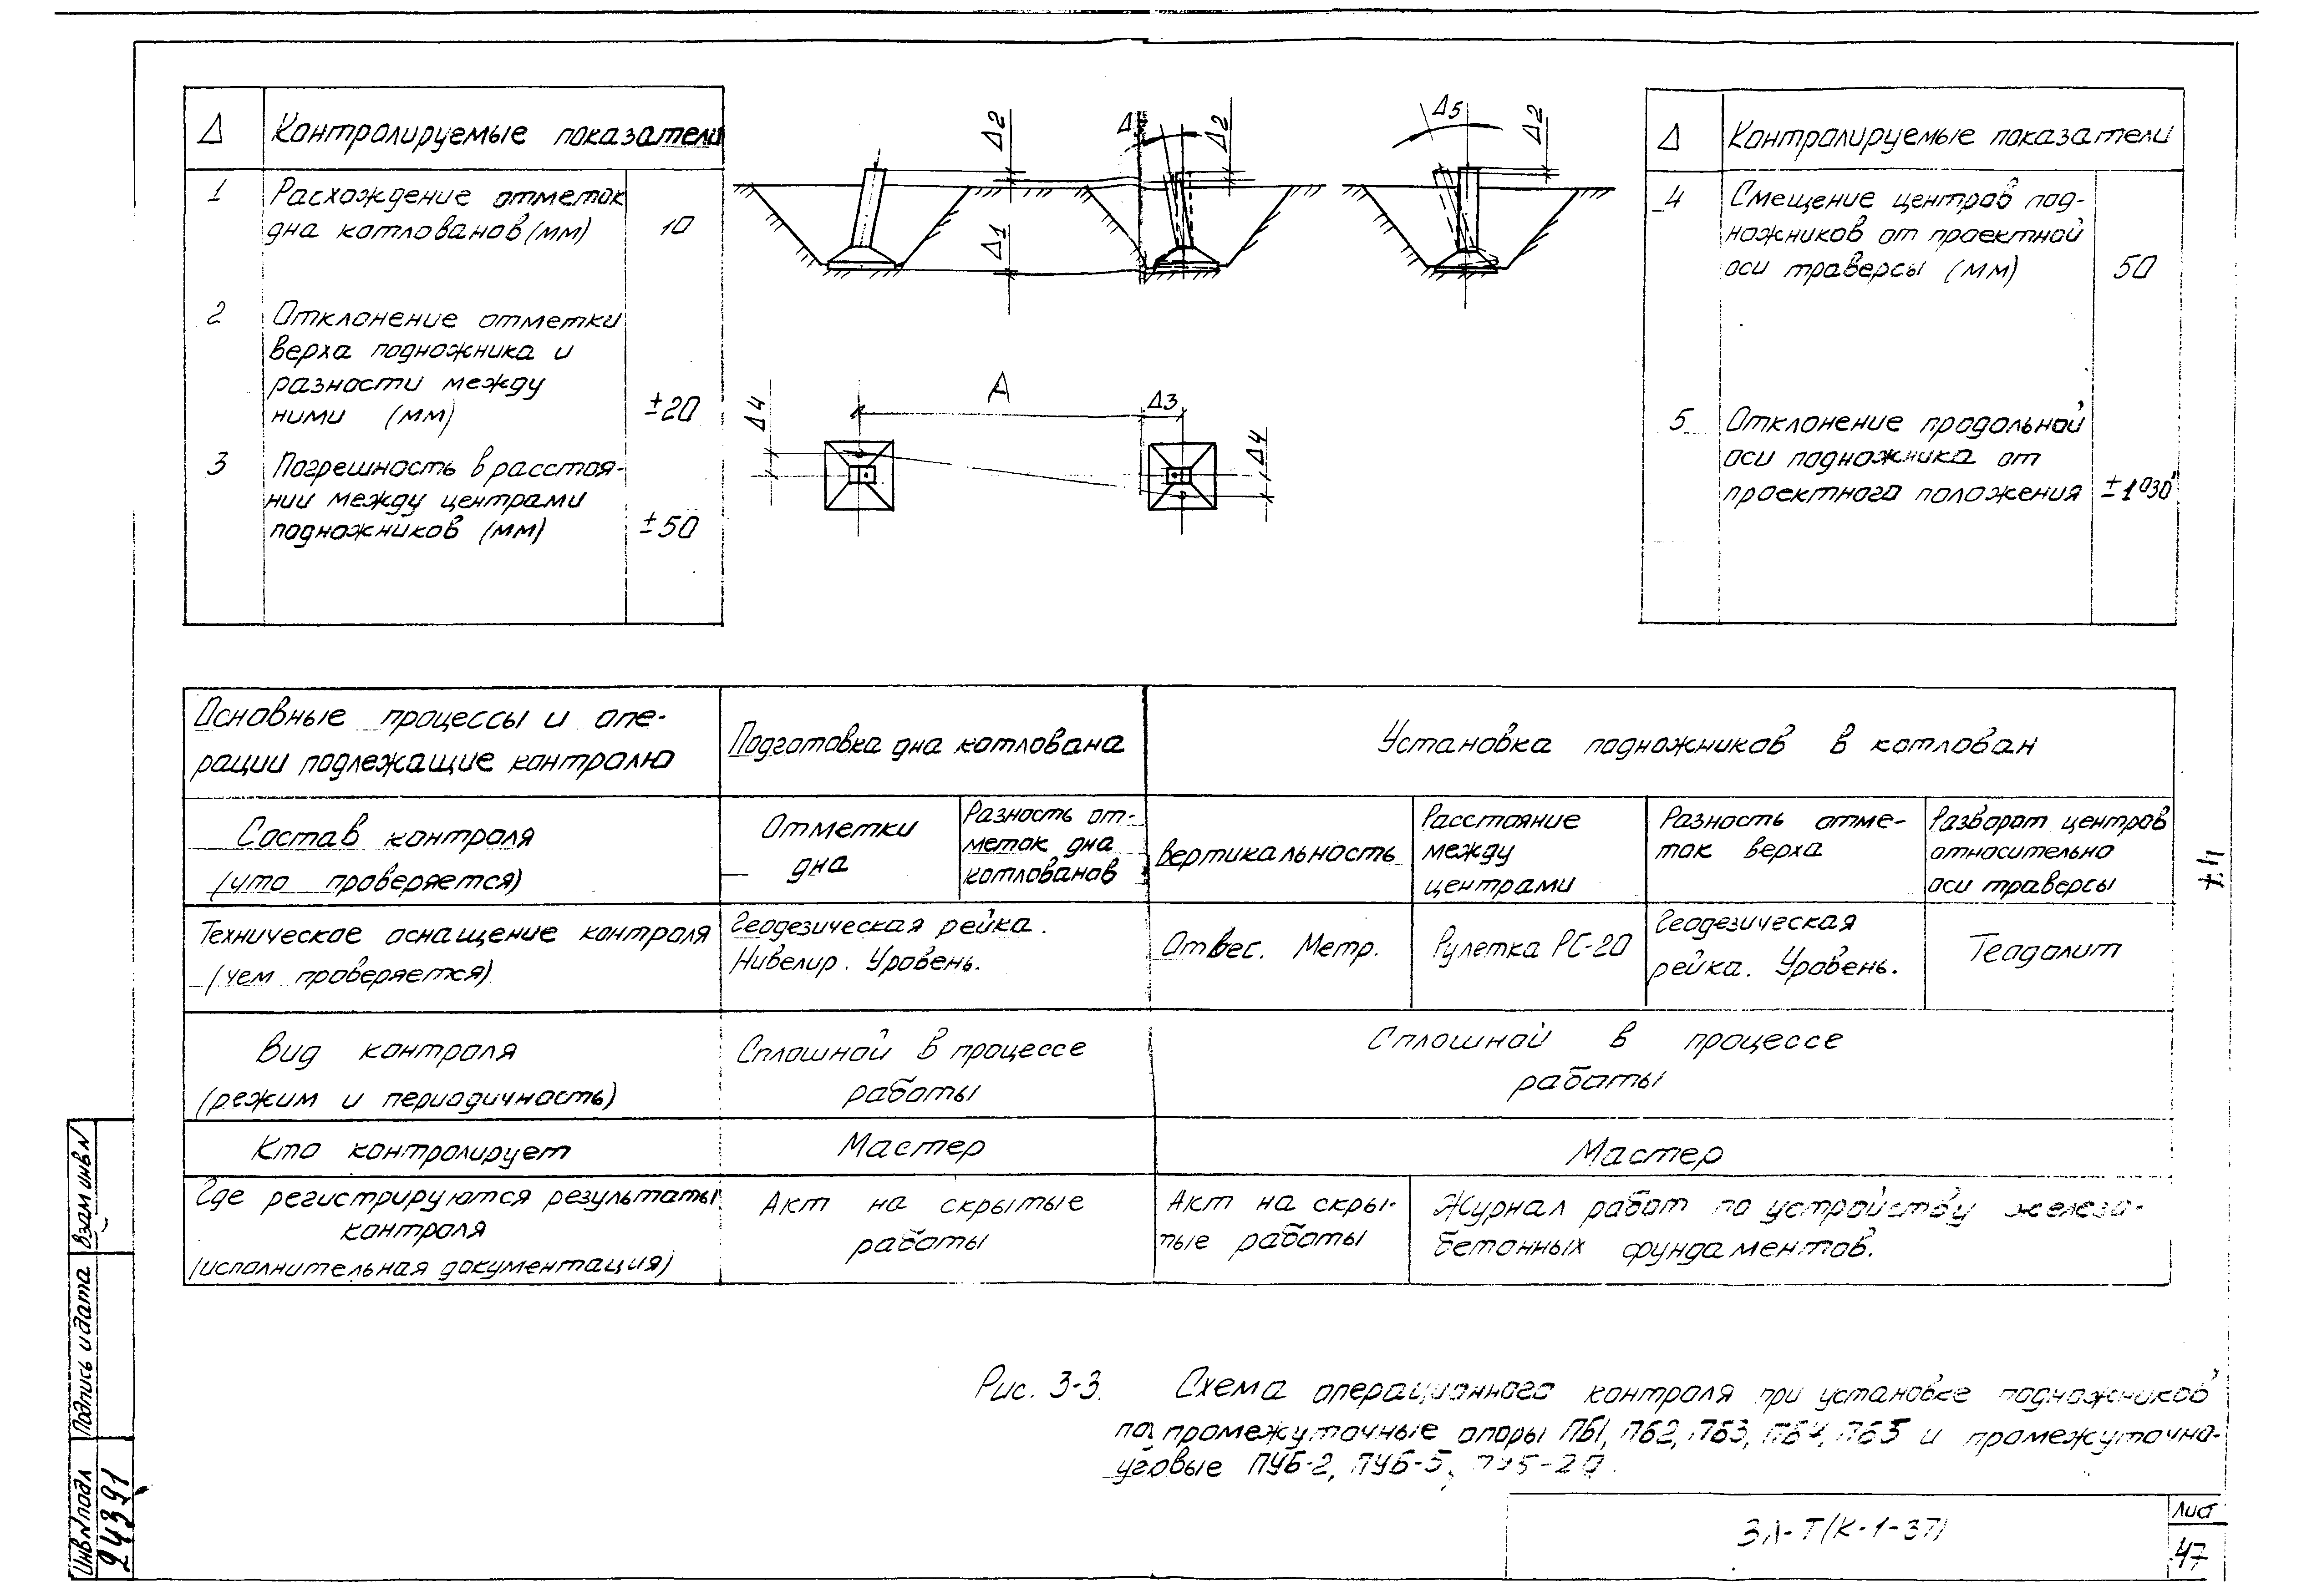 Δ Контролируемые показатели
1 Расхождение отметок
дна котлованов (мм) 10
2 Отклонение отметки
верха подножника и
разности между
ними (мм) ±20
3 Погрешность в расстоя-
нии между центрами
подножников (мм) ±50
Δ2
Δ
Δ2
Δ5
Δ2
Δ1
A
Δ3
Δ4
Δ4
Δ Контролируемые показатели
4 Смещение центров под-
ножников от проектной
оси траверсы (мм) 50
5 Отклонение продольной
оси подножника от
проектного положения ±1°30'
Основные процессы и опе-
рации подлежащие контролю
Подготовка дна котлована
Установка подножников в котлован
Состав контроля
(что проверяется)
Отметки
дна
Разность от-
меток дна
котлованов
Вертикальность
Расстояние
между
центрами
Разность отме-
ток верха
Разворот центров
относительно
оси траверсы
Техническое оснащение контроля
(чем проверяется)
Геодезическая рейка.
Нивелир. Уровень.
Отвес. Метр.
Рулетка РС-20
Геодезическая
рейка. Уровень.
Теодолит
Вид контроля
(режим и периодичность)
Сплошной в процессе
работы
Сплошной в процессе
работы
Кто контролирует
Мастер
Мастер
Где регистрируются результаты
контроля
(исполнительная документация)
Акт на скрытые
работы
Акт на скры-
тые работы
Журнал работ по устройству железо-
бетонных фундаментов.
Рис. 3-3. Схема операционного контроля при установке подножников
под промежуточные опоры ПБ1, ПБ2, ПБ3, ПБ4, ПБ5 и промежуточно-
угловые ПУБ-2, ПУБ-5, ПУБ-20.
Взам инв N
Подпись и дата
Инв N подл
24391
Лист
47